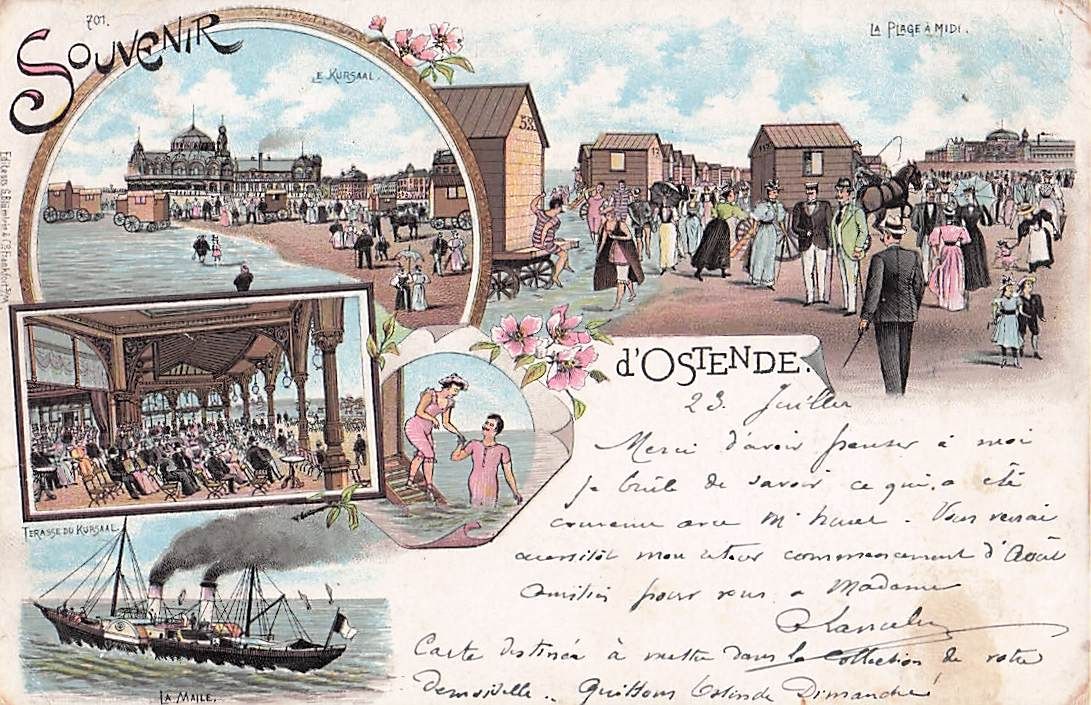 701.
SOUVENIR
LE KURSAAL.
LA PLAGE À MIDI.
53
d'OSTENDE.
TERASSE DU KURSAAL.
LA MAILE.
23. Juillet
Merci d'avoir penser à moi
je brûle de savoir ce qui a été
convenu avec Mr. Vous verrai
aussitôt mon retour commencement d'Août
Amitiés pour vous & Madame
Carte destinée à mettre dans la Collection de votre
demoiselle. Quittons Ostende Dimanche